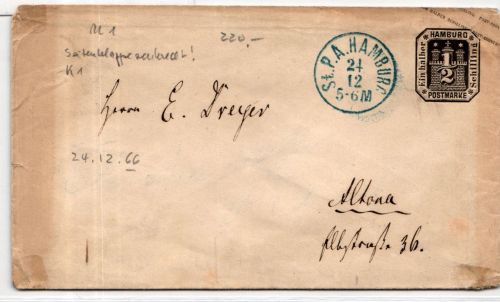 U 1
220,-
K 1
St. P. A. HAMBURG
24
12
5-6 M
HAMBURG
Ein halber
1/2
Schilling
POSTMARKE
Herrn E. Dreyer
24.12.66
Altona
Elbstraße 36.